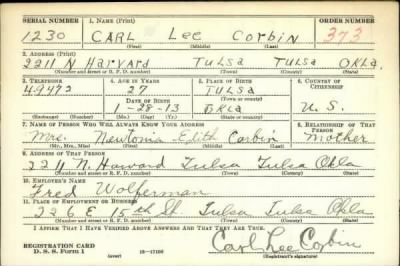 SERIAL NUMBER 1. NAME (Print) ORDER NUMBER
1230 CARL Lee Corbin 373
(First) (Middle) (Last)
2. ADDRESS (Print)
2211 N Harvard TULSA TULSA OKLA.
(Number and street or R. F. D. number) (Town) (County) (State)
3. TELEPHONE 4. AGE IN YEARS 5. PLACE OF BIRTH 6. COUNTRY OF CITIZENSHIP
49472 27 TULSA
DATE OF BIRTH (Town or county)
1-28-13 OKLA U.S.
(Exchange) (No.) (Mo.) (Day) (Yr.) (State or country)
7. NAME OF PERSON WHO WILL ALWAYS KNOW YOUR ADDRESS 8. RELATIONSHIP OF THAT PERSON
Mrs. Newtoma Edith Corbin Mother
(Mr., Mrs., Miss) (First) (Middle) (Last)
9. ADDRESS OF THAT PERSON
2211 N. Harvard Tulsa Tulsa Okla
(Number and street or R. F. D. number) (Town) (County) (State)
10. EMPLOYER'S NAME
Fred Wolferman
11. PLACE OF EMPLOYMENT OR BUSINESS
226 E 15th St Tulsa Tulsa Okla
(Number and street or R. F. D. number) (Town) (County) (State)
I AFFIRM THAT I HAVE VERIFIED ABOVE ANSWERS AND THAT THEY ARE TRUE.
Carl Lee Corbin
REGISTRATION CARD
D. S. S. Form 1 (over) (Registrant's signature)